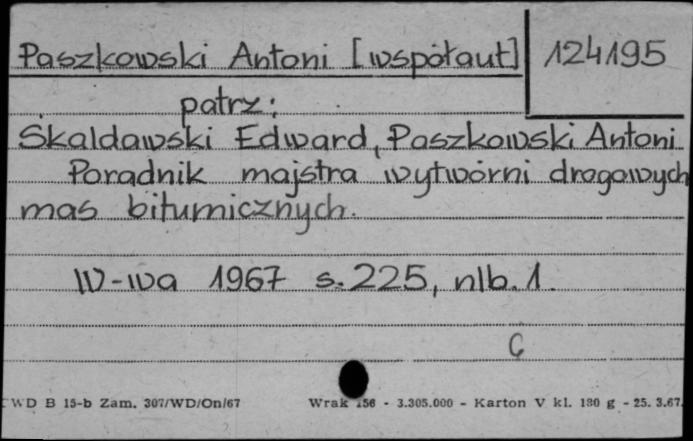 Paszkowski Antoni [współaut] 124195
patrz:
Skaldawski Edward, Paszkowski Antoni
Poradnik majstra wytwórni drogowych
mas bitumicznych.
W-wa 1967 s. 225, nlb. 1.
C
CWD B 15-b Zam. 307/WD/On/67 Wrak 156 - 3.305.000 - Karton V kl. 180 g - 25. 3.67.